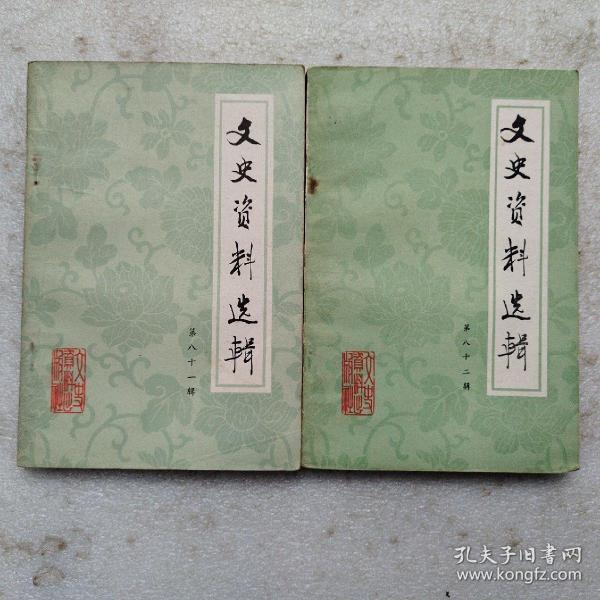 文史资料选辑
第八十一辑
文史资料选辑
第八十二辑
孔夫子旧书网
www.kongfz.com